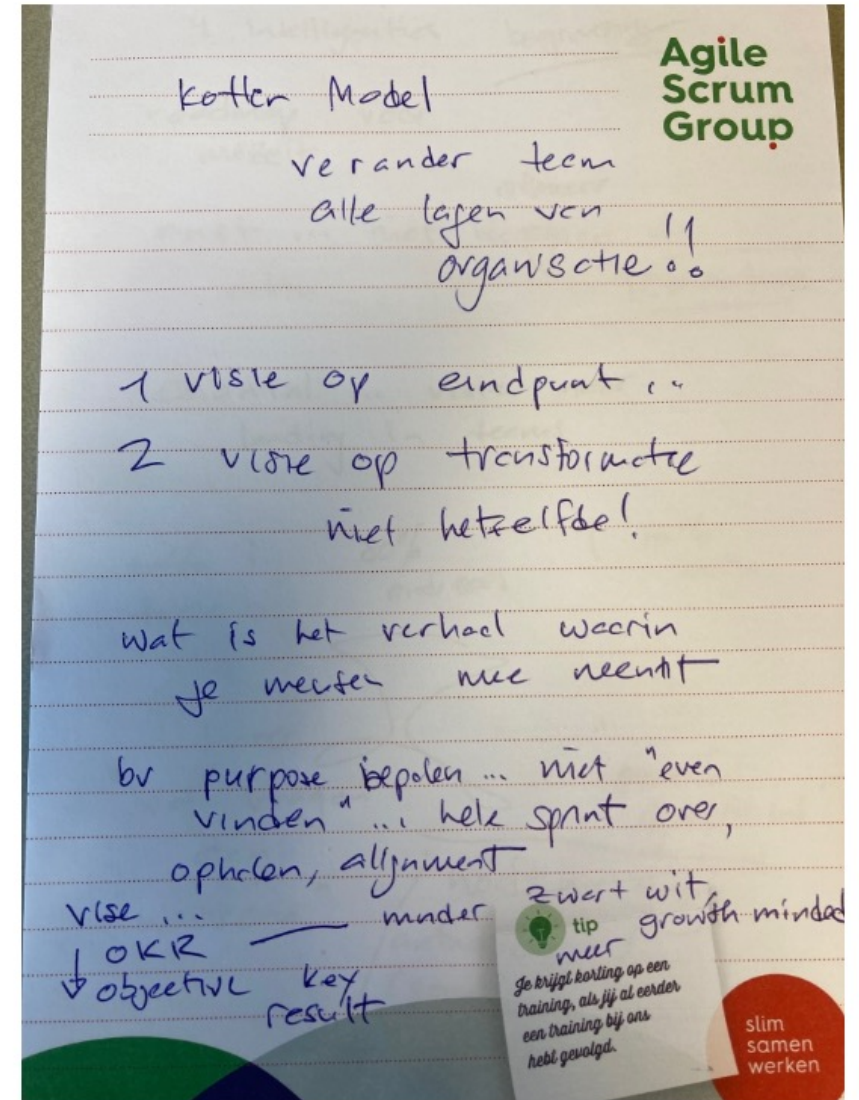 Agile
Scrum
Group
Kotter Model
verander team
alle lagen van
organisatie!!
1 visie op eindpunt...
2 visie op transformatie
niet hetzelfde!
wat is het verhaal waarin
je mensen mee neemt
bv purpose bepalen ... niet "even
vinden" ... hele sprint over,
ophalen, allignment
zwart wit,
vise ... minder growth minded
meer
OKR
objective key
result
tip
Je krijgt korting op een
training, als jij al eerder
een training bij ons
hebt gevolgd.
slim
samen
werken